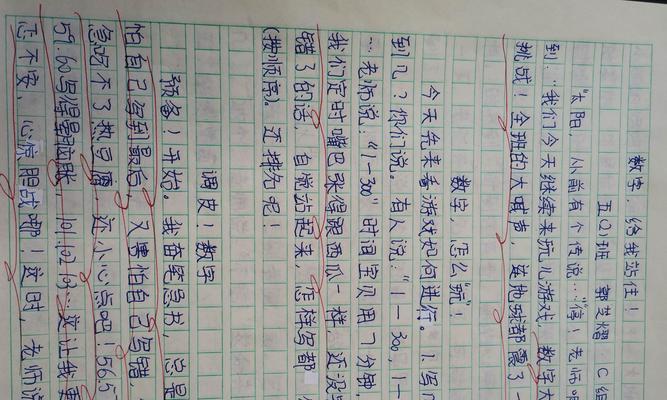 数字,给我站住!
五(2)班 郭芝熠 C组
"太阳,从前有个传说…"停!老师唱
到:"我们今天继续来玩儿游戏,数字大
挑战!全班的大喊声,连地球都震了一
数字,怎么"玩"!
今天先来看游戏如何进行。1.写几
到几?你们说。有人说:"1—300,1—
…老师说:"1—300"时间宝贝用7分钟,
我们定时嘴巴张得跟西瓜一样,还没
错了的话,自觉站起来,怎样写都
(按顺序)。还排名呢!
调皮!数字
预备!开始。我奋笔急书,总是
怕自己写到最后,又害怕自己写错,
急吃不了热豆腐,还小心点吧!56.57
59.60写得晕脑胀,101.102.103…这让我更
忐不安,心惊胆战哪!这时,老师说